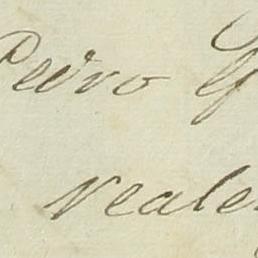 Pedro
reale